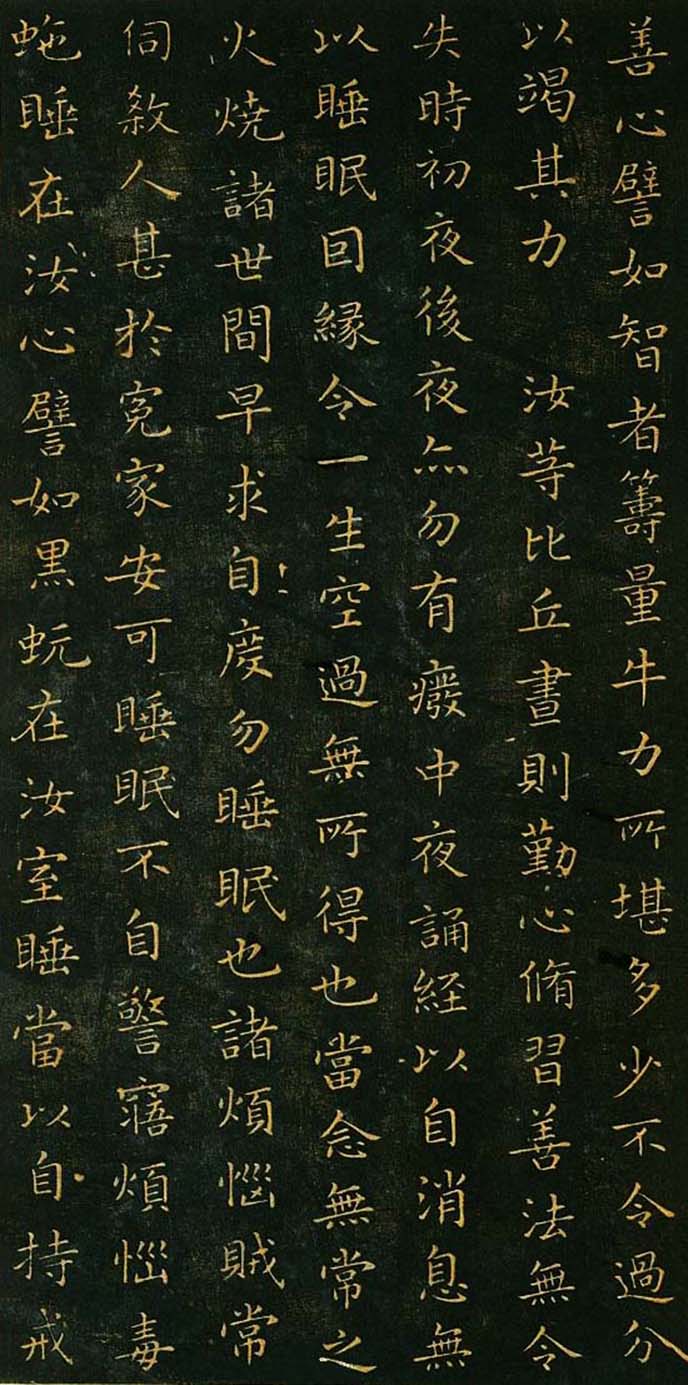 善心譬如智者籌量牛力所堪多少不令過分
以竭其力　汝等比丘晝則勤心脩習善法無令
失時初夜後夜亦勿有癈中夜誦経以自消息無
以睡眠囙縁令一生空過無所得也當念無常之
火焼諸世間早求自度勿睡眠也諸煩惱賊常
伺煞人甚於寃家安可睡眠不自警寤煩惱毒
虵睡在汝心譬如黒蚖在汝室睡當以自持戒